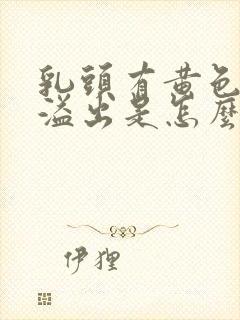 乳頭有黃色
溢出是怎麼
伊狸